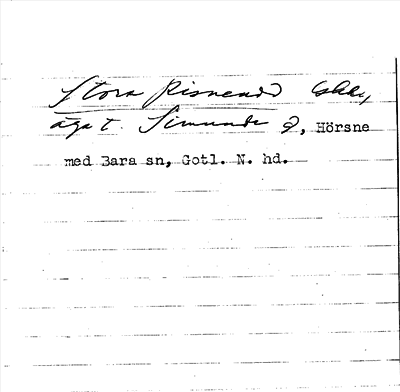 Stora Risneände åker,
äga t. Simunde 2, Hörsne
med Bara sn, Gotl. N. hd.